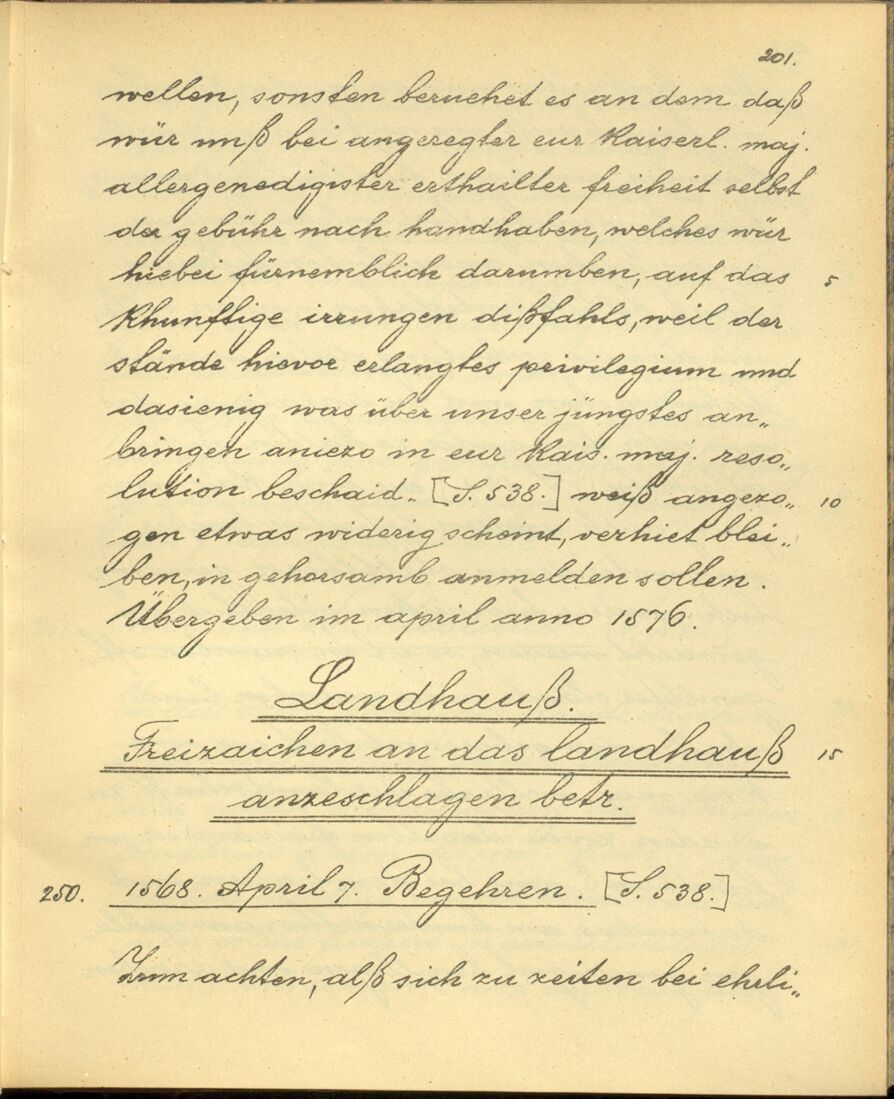 201.
wellen, sonsten beruehet es an dem daß
wür unß bei angeregter eur kaiserl. maj.
allergenedigister erthailter freiheit selbst
der gebühr nach handhaben, welches wür
hiebei fürnemblich darumben, auf das 5
khunftige irrungen dißfahls, weil der
stände hievor erlangtes privilegium und
dasienig was über unser jüngstes an„
bringen aniezo in eur kais. maj. reso„
lution beschaid„ [S. 538.] weiß angezo„ 10
gen etwas widerig scheint, verhiet blei„
ben, in gehorsamb anmelden sollen.
Übergeben im april anno 1576.
Landhauß.
Freizaichen an das landhauß 15
anzeschlagen betr.
250. 1568. April 7. Begehren. [S. 538.]
Inn achten, alß sich zu zeiten bei ehrli„